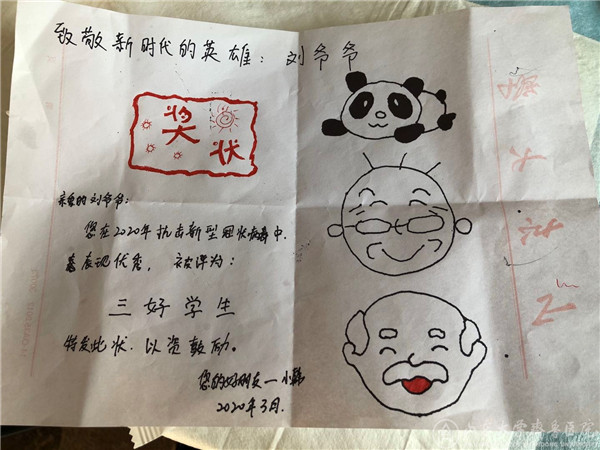 致敬新时代的英雄：刘爷爷
奖
状
亲爱的刘爷爷：
您在2020年抗击新型冠状病毒中，
表现优秀，被评为：
三好学生
特发此状，以资鼓励。
您的好朋友—小
2020年3月.